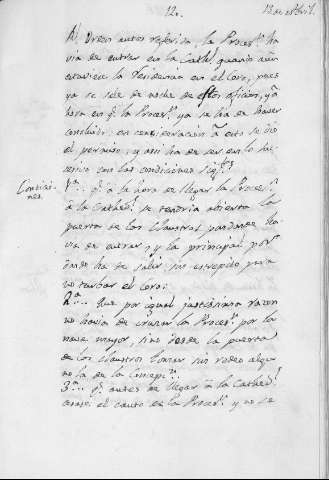 12.
13 de Abril.
referido, la Proces.n ha
via de entrar en la Cathl. quando aun
estaviera la Vendenan en el Coro, pues
ya se sale de noche de estos oficios, y à
hora en q.e la Proces.n ya se ha de haver
concluido; en consideracion à esto se dio
el permiso; y assi ha de ser en lo suc
cesivo con las condiciones sig.tes
Condicio
nes.
1.a q.e à la hora de llegar la Proces.n
à la Cathed.l se tendria abierta la
puerta de los Claustros por donde ha
via de entrar, y la principal por
donde ha de salir sin estrepito para
no turbar el coro:
2.a Que por igual justissima razon
no havia de cruzar la Proces.n por la
nave mayor, sino desde la puerta
de los Claustros tomar sin rodeo algu
no la de la Concepc.n:
3.a q.e antes de llegar à la Cathed.l
cesase el canto en la Proces.n y no se